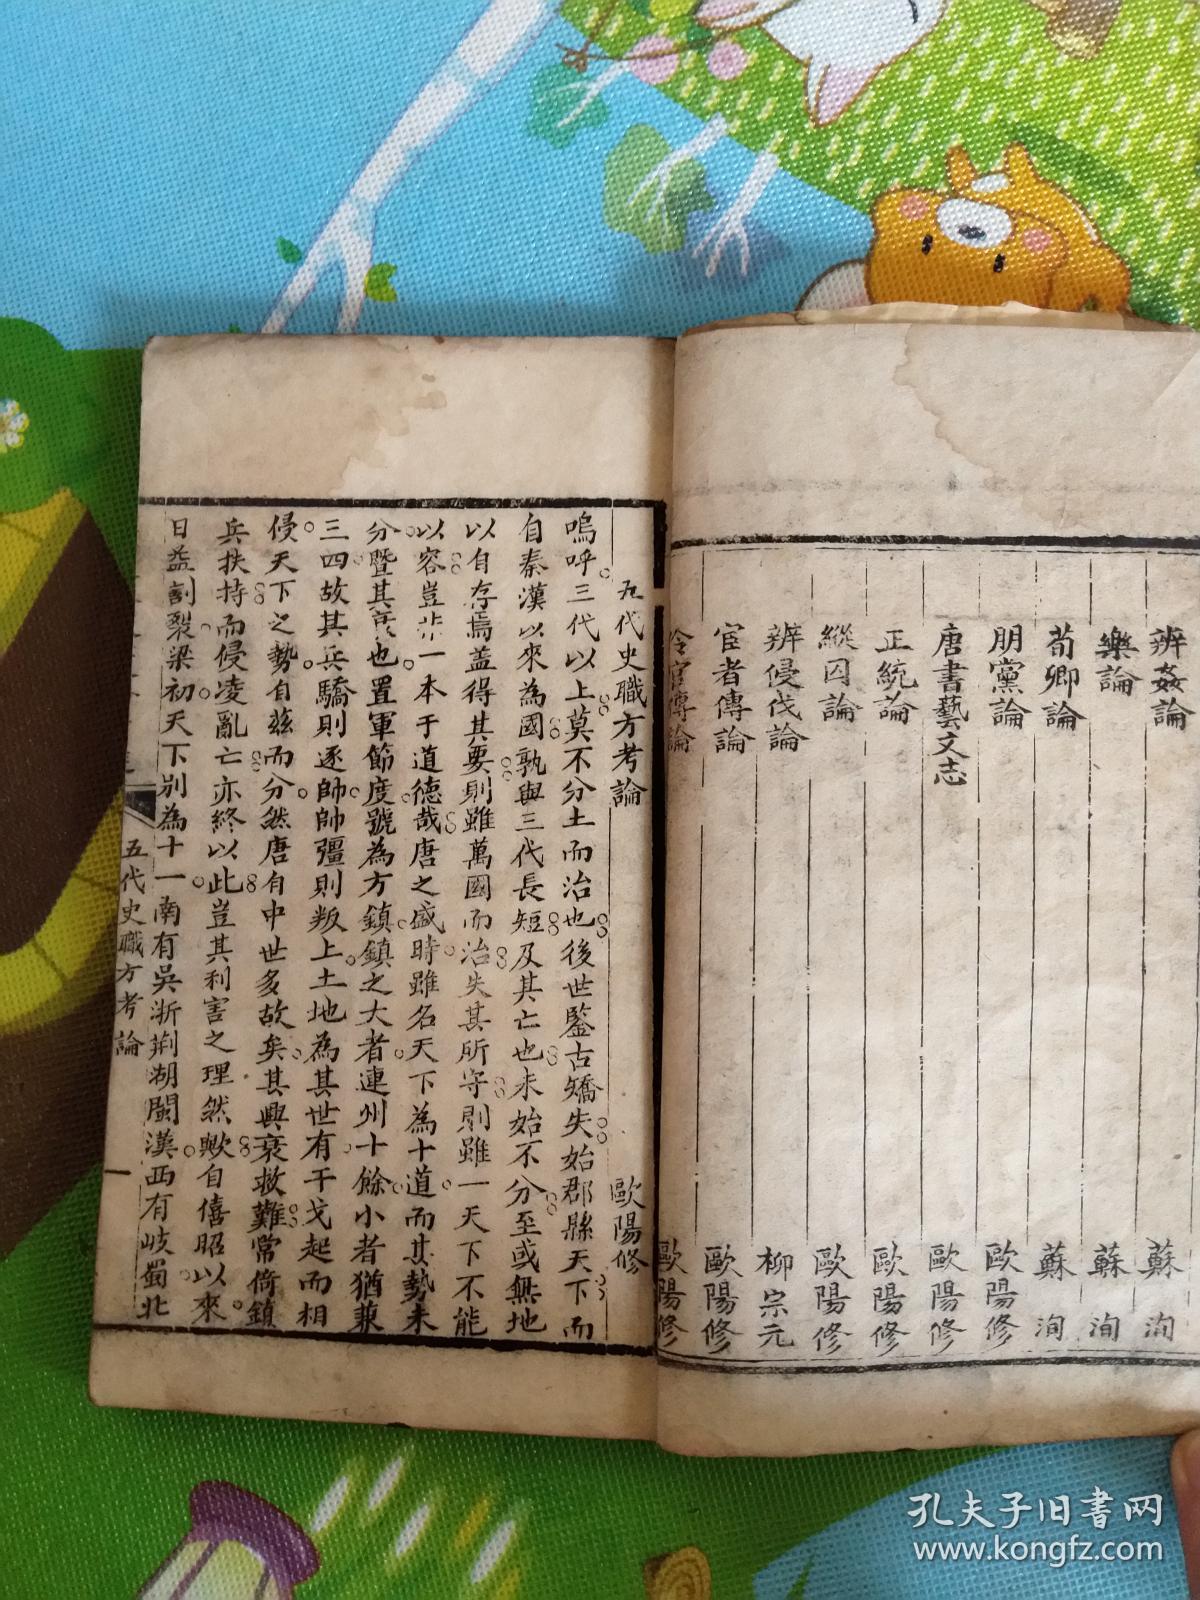 辨姦論 蘇洵
樂論 蘇洵
荀卿論 蘇洵
朋黨論 歐陽修
唐書藝文志 歐陽修
正統論 歐陽修
縱囚論 歐陽修
辨侵伐論 柳宗元
宦者傳論 歐陽修
伶官傳論 歐陽修
五代史職方考論 歐陽修
嗚呼三代以上莫不分土而治也後世鑒古矯失始郡縣天下而
自秦漢以來為國孰與三代長短及其亡也未始不分至或無地
以自存焉蓋得其要則雖萬國而治失其所守則雖一天下不能
以容豈非一本于道德哉唐之盛時雖名天下為十道而其勢未
分暨其衰也置軍節度號為方鎮鎮之大者連州十餘小者猶兼
三四故其兵驕則逐帥帥彊則叛上土地為其世有干戈起而相
侵天下之勢自茲而分然唐自中世多故矣其興衰救難常倚鎮
兵扶持而侵凌亂亡亦終以此豈其利害之理然歟自僖昭以來
日益割裂梁初天下別為十一南有吳浙荆湖閩漢西有岐蜀北
五代史職方考論 一
孔夫子旧书网
www.kongfz.com